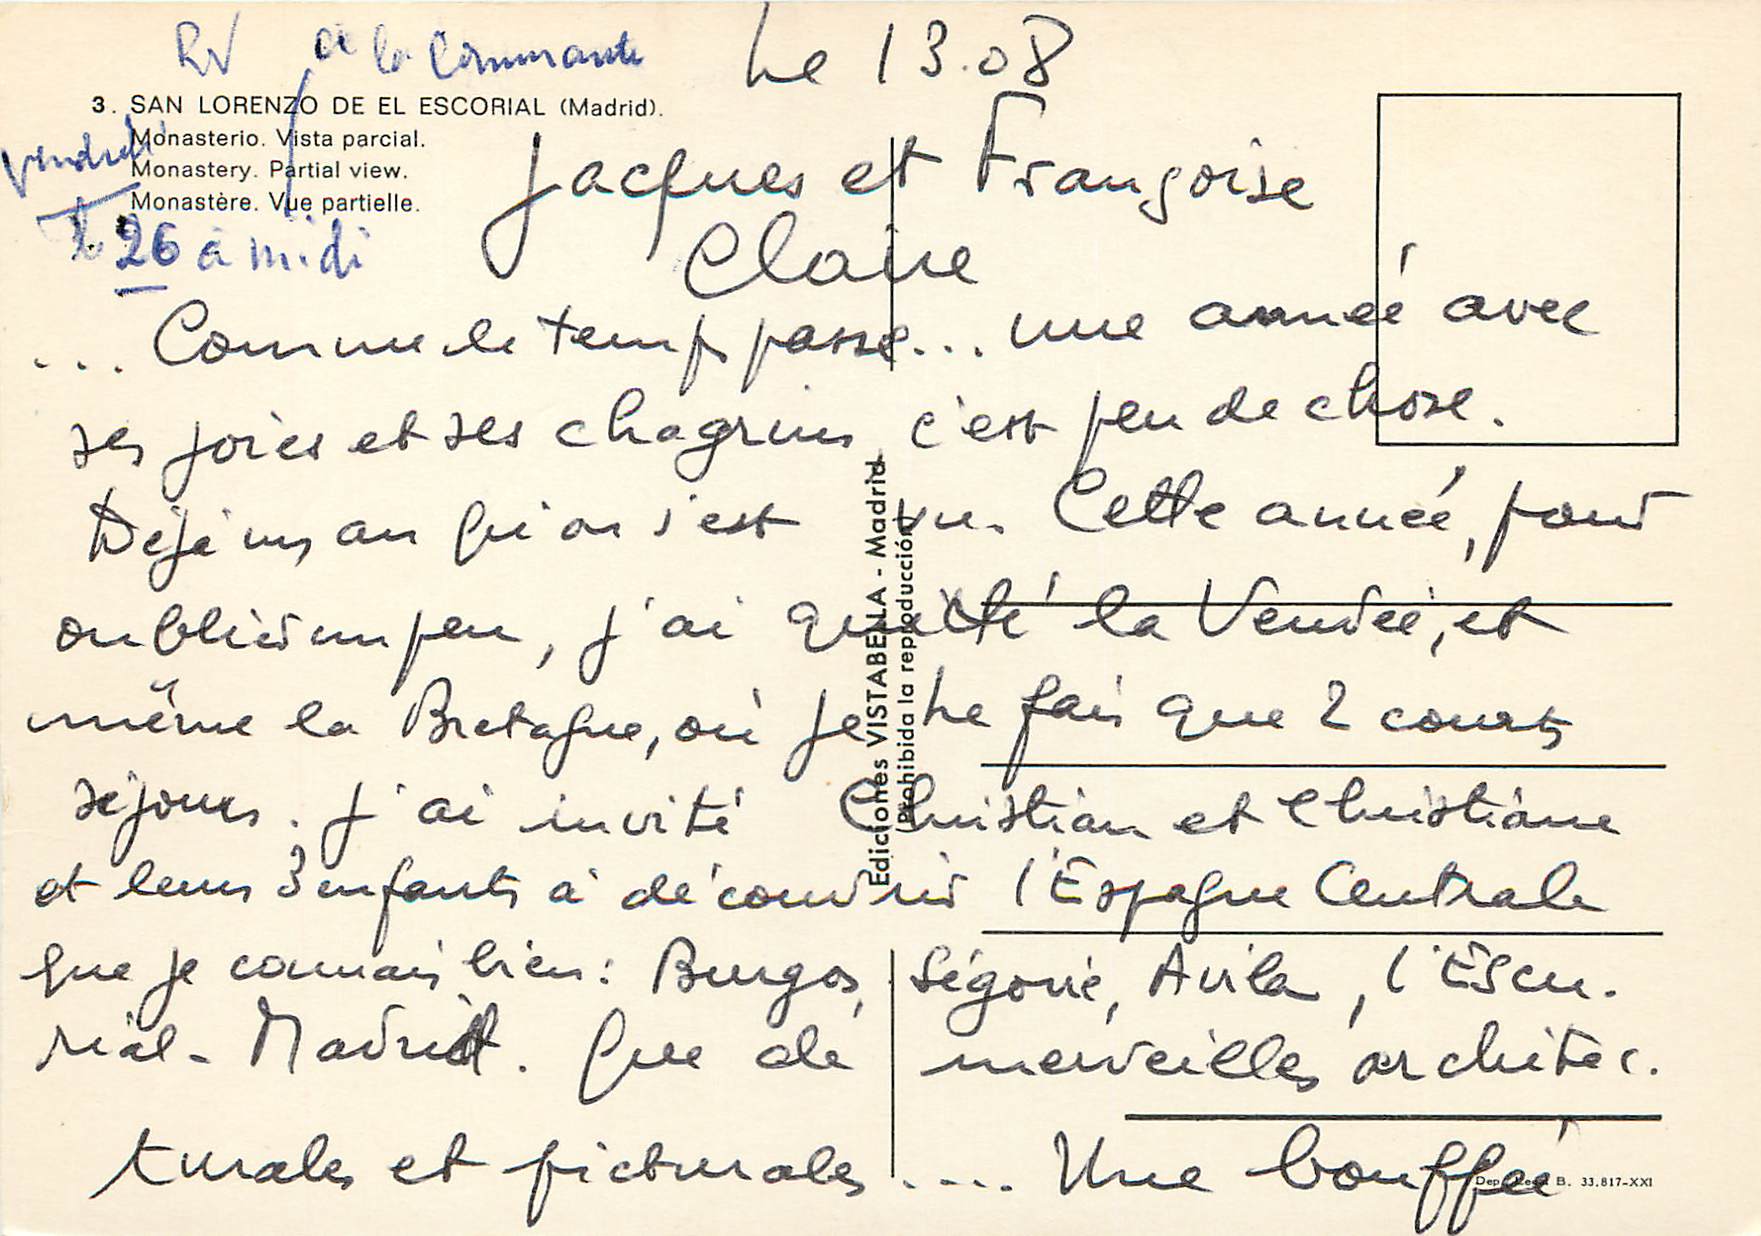 RV à la Commante
Le 13.08
3. SAN LORENZO DE EL ESCORIAL (Madrid).
Monasterio. Vista parcial.
Monastery. Partial view.
Monastère. Vue partielle.
vendredi
le 26 à midi
Jacques et Françoise
Claire
... Comme le temps passe... une année avec
ses joies et ses chagrins c'est peu de chose.
Déjà un an qu'on s'est vu. Cette année, pour
oublier un peu, j'ai quitté la Vendée, et
même la Bretagne, où je ne fais que 2 courts
séjours. J'ai invité Christian et Christiane
et leurs 3 enfants à découvrir l'Espagne Centrale
que je connais bien: Burgos, Ségovie, Avila, l'Escu-
rial- Madrid. Que de merveilles architec-
turales et picturales.... Une bouffée
Ediciones VISTABELLA - Madrid
(Prohibida la reproducción)
Dep. Legal B. 33.817-XXI